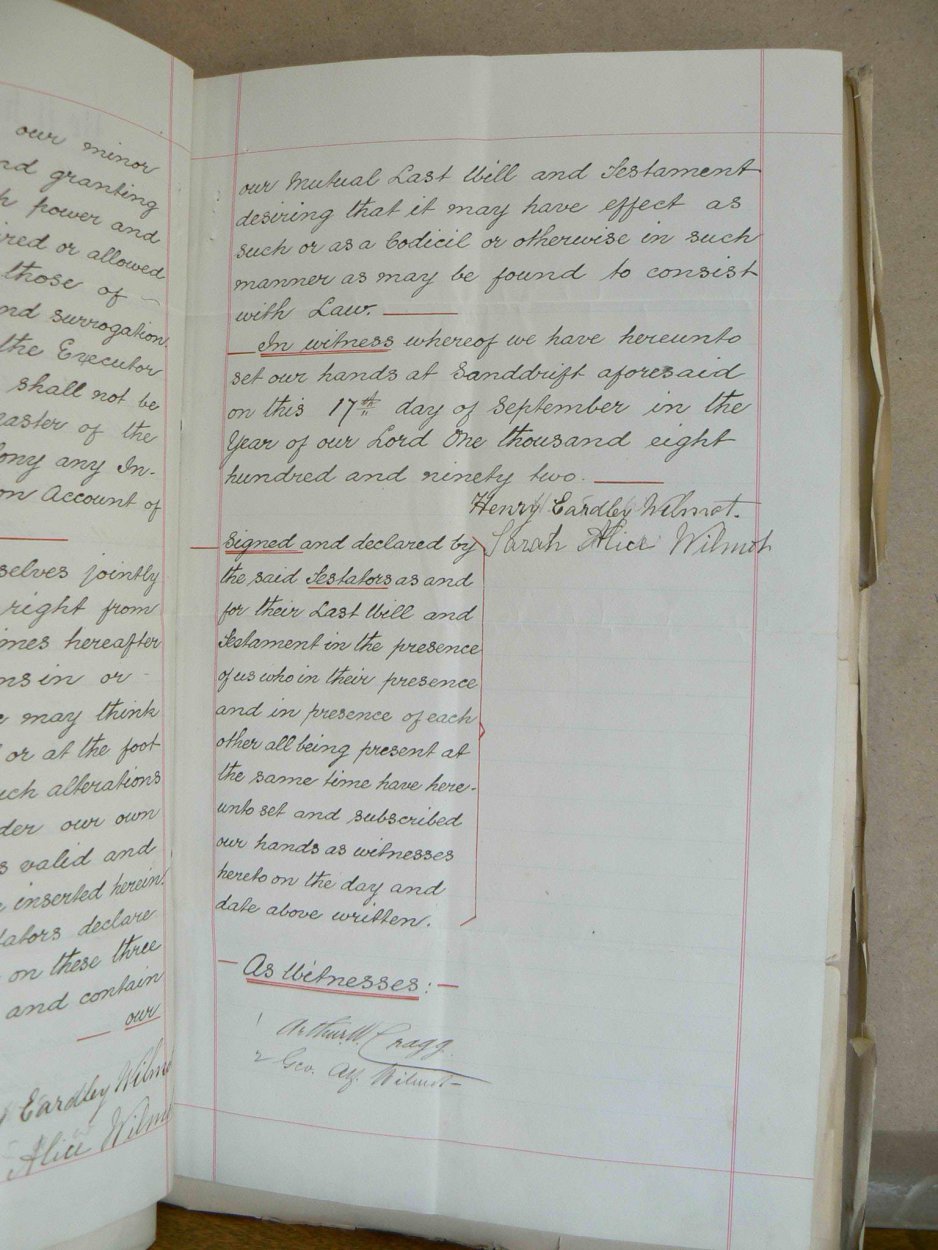 our minor
nd granting
h power and
ired or allowed
those of
nd surrogation
the Executor
shall not be
aster of the
ony any In-
on Account of
selves jointly
right from
mes hereafter
ns in or
may think
or at the foot
uch alterations
der our own
s valid and
inserted herein
tators declare
on these three
and contain
our
Eardley Wilmo
Alice Wilmo
our Mutual Last Will and Testament
desiring that it may have effect as
such or as a Codicil or otherwise in such
manner as may be found to consist
with Law.
In witness whereof we have hereunto
set our hands at Sanddrift aforesaid
on this 17th day of September in the
Year of our Lord One thousand eight
hundred and ninety two.
Henry Eardley Wilmot.
Sarah Alice Wilmot
Signed and declared by
the said Testators as and
for their Last Will and
Testament in the presence
of us who in their presence
and in presence of each
other all being present at
the same time have here-
unto set and subscribed
our hands as witnesses
hereto on the day and
date above written.
As Witnesses:
1 Arthur W. Cragg.
2 Geo. Alf. Wilmot